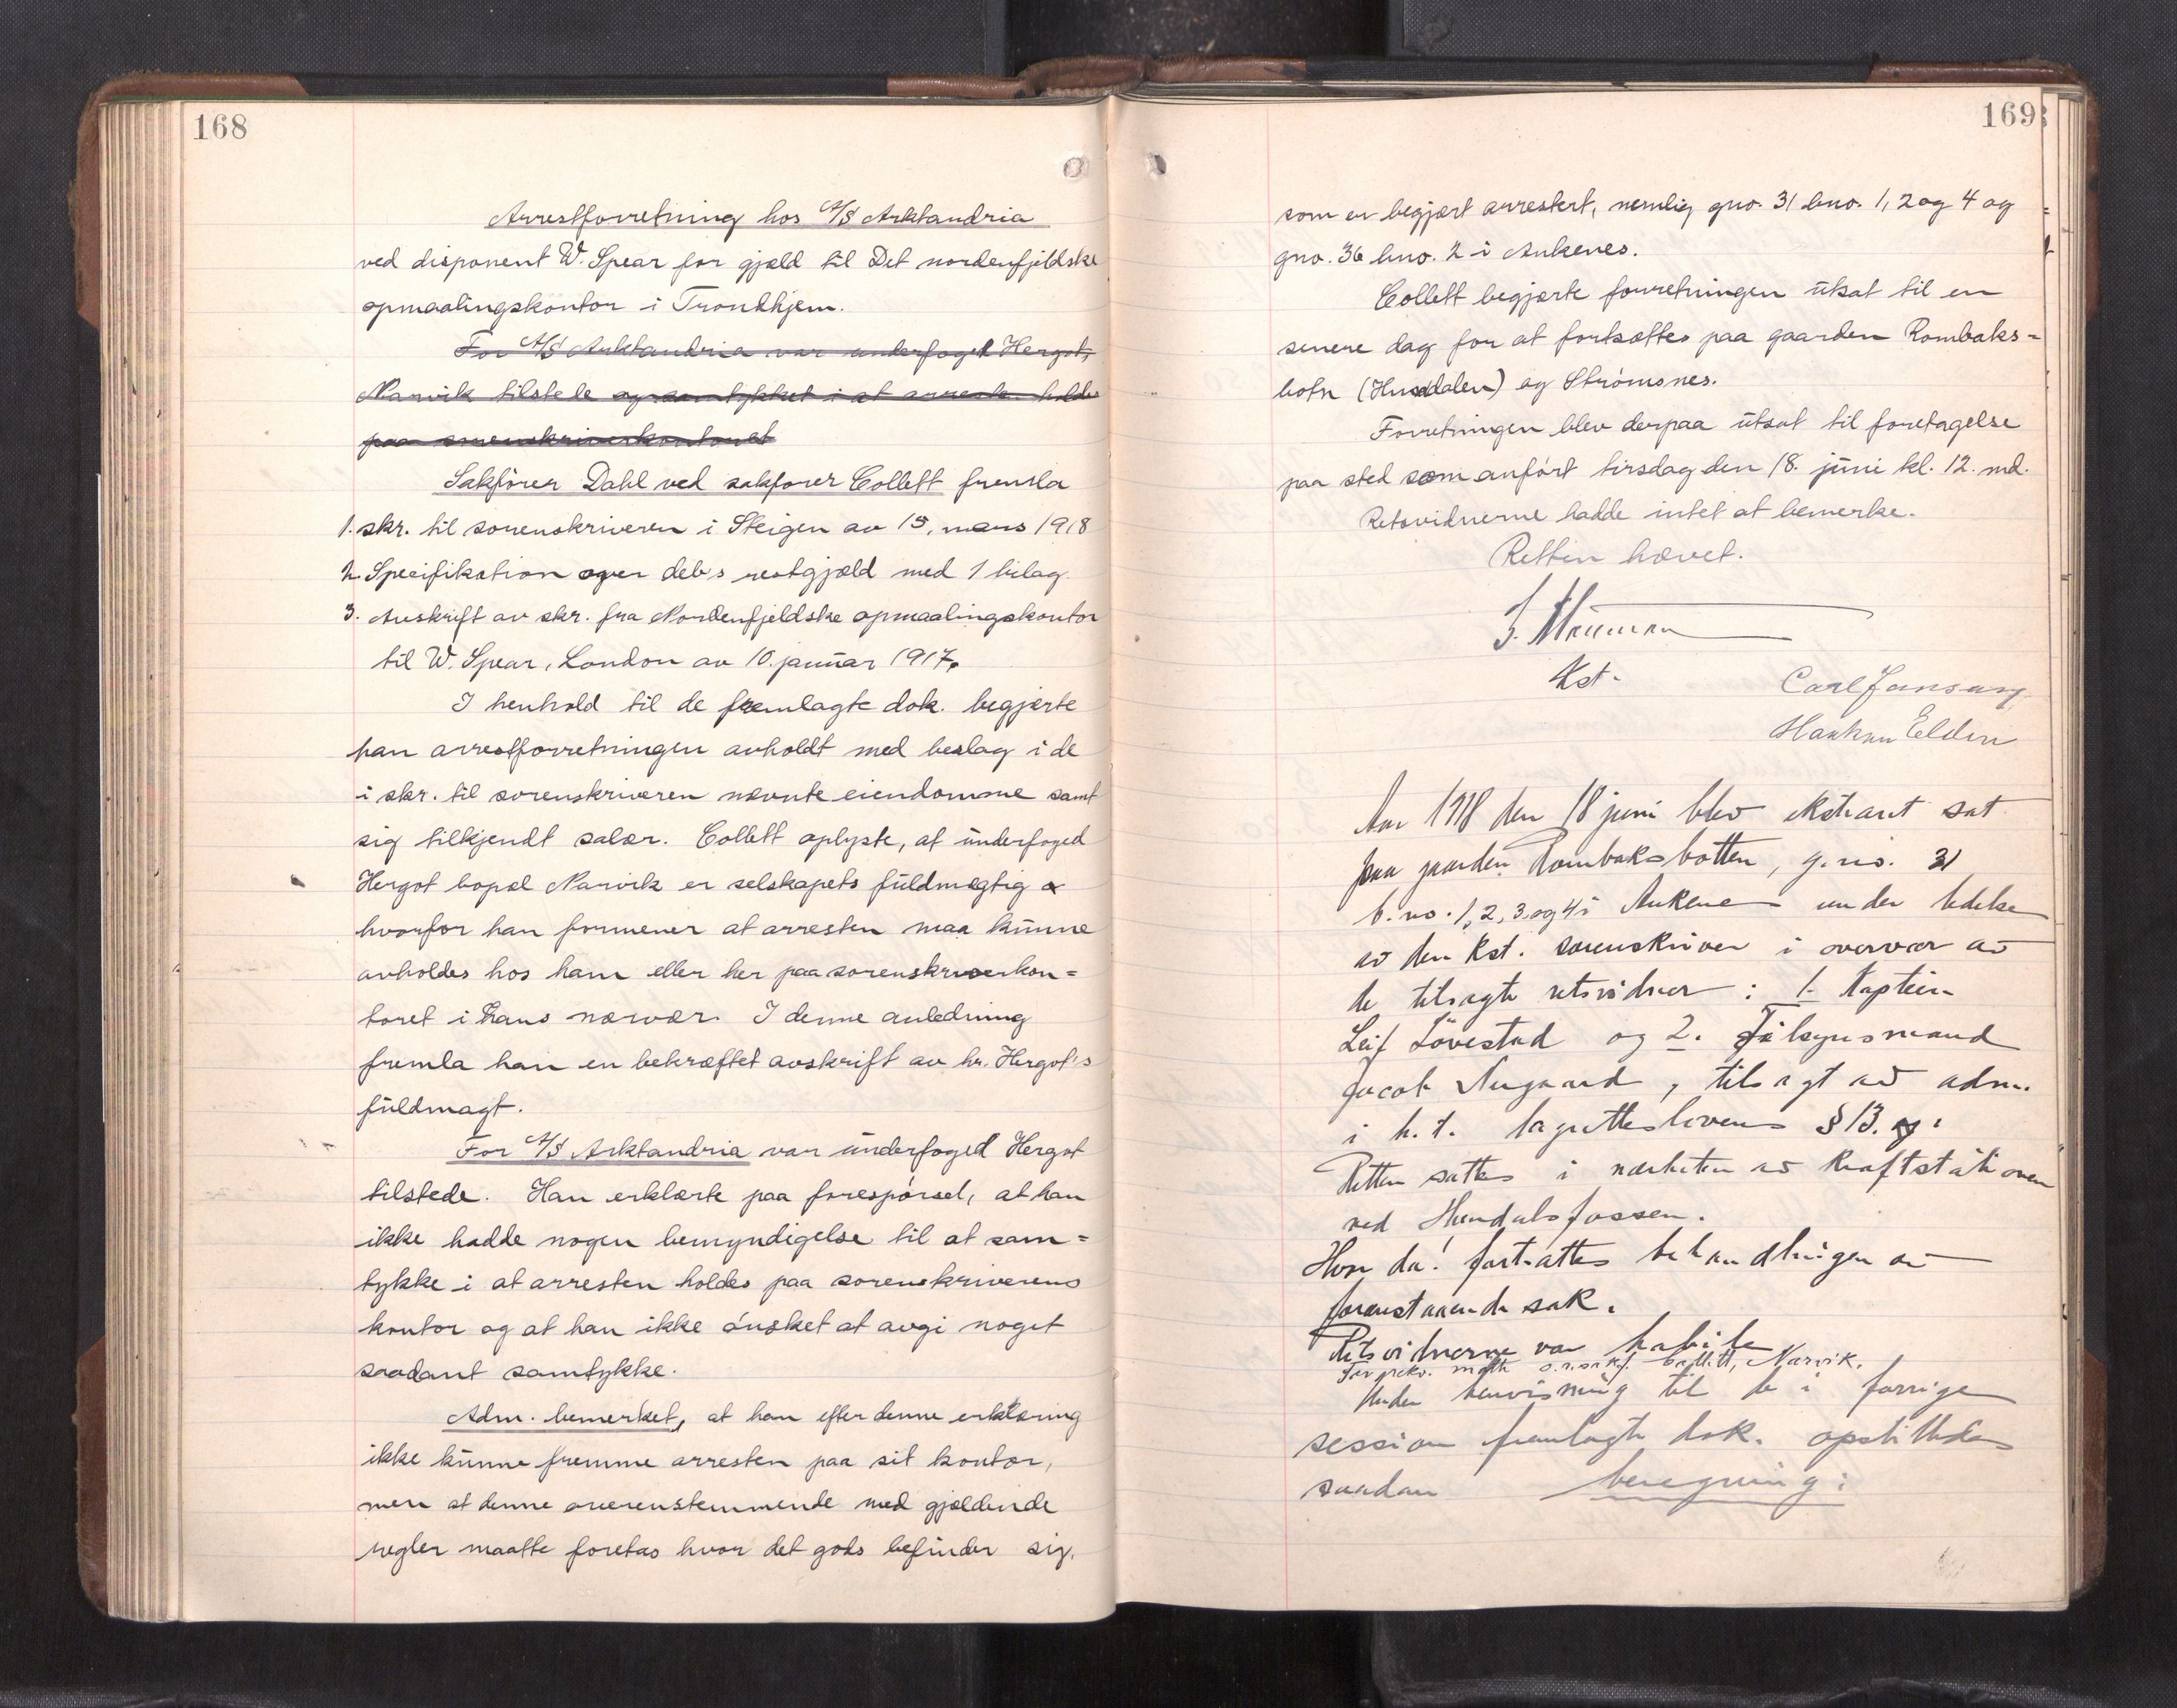 168
Arrestforretning hos A/S Arktandria
ved disponent W. Spear for gjæld til Det nordenfjeldske
opmaalingskontor i Trondhjem.
For A/S Arktandria var underfoged Hergot,
Narvik tilstede og samtykket i at arresten holdes
paa sorenskriverkontoret
Sakfører Dahl ved sakfører Collett fremla
1. skr. til sorenskriveren i Steigen av 15. mars 1918
2. Specifikation over deb's restgjæld med 1 bilag.
3. Avskrift av skr. fra Nordenfjeldske opmaalingskontor
til W. Spear, London av 10. januar 1917.
I henhold til de fremlagte dok. begjærte
han arrestforretningen avholdt med beslag i de
i skr. til sorenskriveren nævnte eiendomme samt
sig tilkjendt salær. Collett oplyste, at underfoged
Hergot bopæl Narvik er selskapets fuldmægtig
hvorfor han formener at arresten maa kunne
avholdes hos ham eller her paa sorenskriverkon=
toret i hans nærvær. I denne anledning
fremla han en bekræftet avskrift av hr. Hergot's
fuldmagt.
For A/S Arktandria var underfoged Hergot
tilstede. Han erklærte paa forespørsel, at han
ikke hadde nogen bemyndigelse til at sam=
tykke i at arresten holdes paa sorenskriverens
kontor og at han ikke ønsket at avgi noget
saadant samtykke.
Adm. bemerket, at han efter denne erklæring
ikke kunne fremme arresten paa sit kontor,
men at denne overenstemmende med gjældende
regler maatte foretas hvor det gods befinder sig,
169
som er begjært arrestert, nemlig gno. 31 bno. 1, 2 og 4 og
gno. 36 bno. 2 i Ankenes.
Collett begjærte forretningen utsat til en
senere dag for at fortsættes paa gaarden Rombaks=
botn (Hundalen) og Strømsnes.
Forretningen blev derpaa utsat til foretagelse
paa sted som anført tirsdag den 18. juni kl. 12. md.
Retsvidnerne hadde intet at bemerke.
Retten hævet.
Kst.
Carl Jensen
Haakon Elden
Aar 1918 den 18 juni blev ekstraret sat
paa gaarden Rombaksbotten, g.no. 31
b.no. 1, 2, 3 og 4 i Ankenes under ledelse
av den kst. sorenskriver i overvær av
de tilsagte retsvidner: 1. Kaptein
Leif Løvestad og 2. Tilsynsmand
Jacob Nygaard, tilsagt av adm.
i h. t. lagrettelovens § 13.
Retten sattes i nærheten av kraftstationen
ved Hundalsfossen.
Hvor da: fortsattes behandlingen av
forenstaaende sak.
Retsvidnerne var habile
For rekv. møtte o.r.sakf. Collett, Narvik.
Under henvisning til de i forrige
session fremlagte dok. opstilledes
saadan beregning: